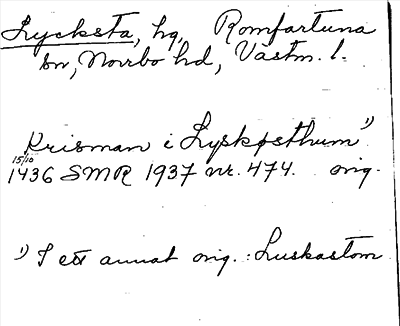 Lycksta, hg, Romfartuna
sn, Norrbo hd, Västm. l.
Krisman i Lyskosthum 1)
15/10 1436 SMR 1937 nr. 474. orig.
1) I ett annat orig.: Luskastom